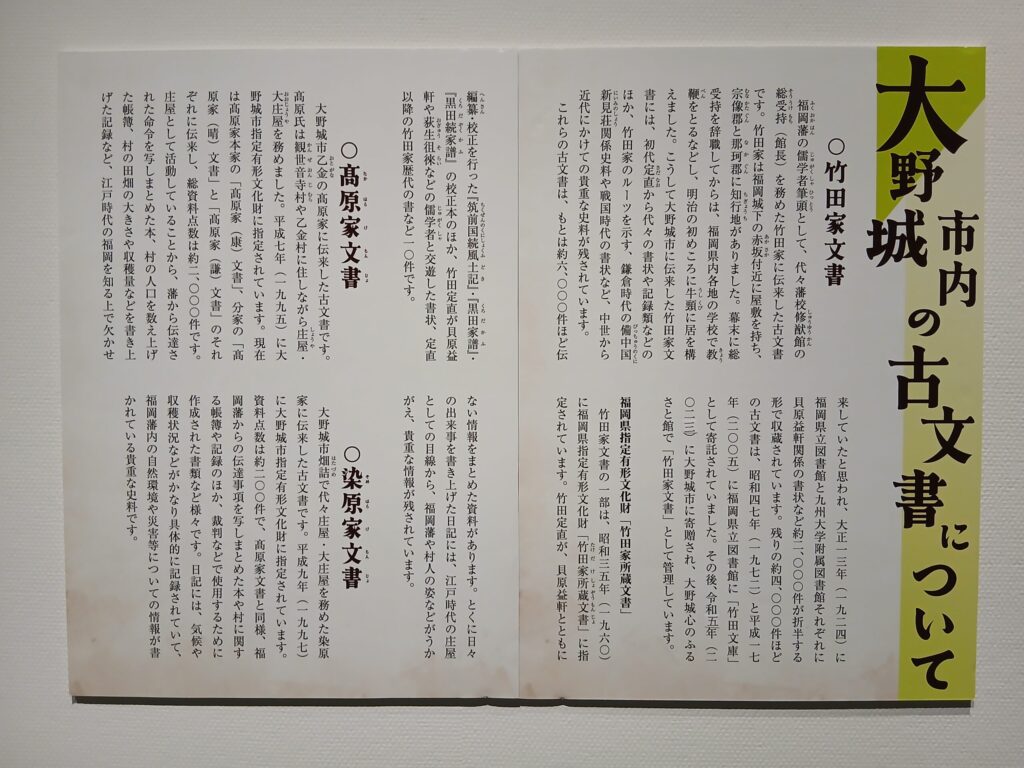 大野城市内の古文書について
○竹田家文書
福岡藩の儒学者筆頭として、代々藩校修猷館の
総受持（館長）を務めた竹田家に伝来した古文書
です。竹田家は福岡城下の赤坂付近に屋敷を持ち、
宗像郡と那珂郡に知行地がありました。幕末に総
受持を辞職してからは、福岡県内各地の学校で教
鞭をとるなどし、明治の初めころに牛頸に居を構
えました。こうして大野城市に伝来した竹田家文
書には、初代定直から代々の書状や記録類などの
ほか、竹田家のルーツを示す、鎌倉時代の備中国
新見荘関係史料や戦国時代の書状など、中世から
近代にかけての貴重な史料が残されています。
これらの古文書は、もとは約六、〇〇〇件ほど伝
来していたと思われ、大正一三年（一九二四）に
福岡県立図書館と九州大学附属図書館それぞれに
貝原益軒関係の書状など約二、〇〇〇件が折半する
形で収蔵されています。残りの約四、〇〇〇件ほど
の古文書は、昭和四七年（一九七二）と平成一七
年（二〇〇五）に福岡県立図書館に「竹田文庫」
として寄託されていました。その後、令和五年（二
〇二三）に大野城市に寄贈され、大野城心のふる
さと館で「竹田家文書」として管理しています。
福岡県指定有形文化財「竹田家所蔵文書」
竹田家文書の一部は、昭和三五年（一九六〇）
に福岡県指定有形文化財「竹田家所蔵文書」に指
定されています。竹田定直が、貝原益軒とともに
編纂・校正を行った『筑前国続風土記』・『黒田家譜』・
『黒田続家譜』の校正本のほか、竹田定直が貝原益
軒や荻生徂徠などの儒学者と交遊した書状、定直
以降の竹田家歴代の書など一一〇件です。
○髙原家文書
大野城市乙金の髙原家に伝来した古文書です。
髙原氏は観世音寺村や乙金村に住しながら庄屋・
大庄屋を務めました。平成七年（一九九五）に大
野城市指定有形文化財に指定されています。現在
は髙原家本家の「髙原家（康）文書」、分家の「髙
原家（晴）文書」と「髙原家（謙）文書」のそれ
ぞれに伝来し、総資料点数は約二、〇〇〇件です。
庄屋として活動していることから、藩から伝達さ
れた命令を写しまとめた本、村の人口を数え上げ
た帳簿、村の田畑の大きさや収穫量などを書き上
げた記録など、江戸時代の福岡を知る上で欠かせ
ない情報をまとめた資料があります。とくに日々
の出来事を書き上げた日記には、江戸時代の庄屋
としての目線から、福岡藩や村人の姿などがうか
がえ、貴重な情報が残されています。
○染原家文書
大野城市畑詰で代々庄屋・大庄屋を務めた染原
家に伝来した古文書です。平成九年（一九九七）
に大野城市指定有形文化財に指定されています。
資料点数は約二〇〇件で、髙原家文書と同様、福
岡藩からの伝達事項を写しまとめた本や村に関す
る帳簿や記録のほか、裁判などで使用するために
作成された書類など様々です。日記には、気候や
収穫状況などがかなり具体的に記録されていて、
福岡藩内の自然環境や災害等についての情報が書
かれている貴重な史料です。